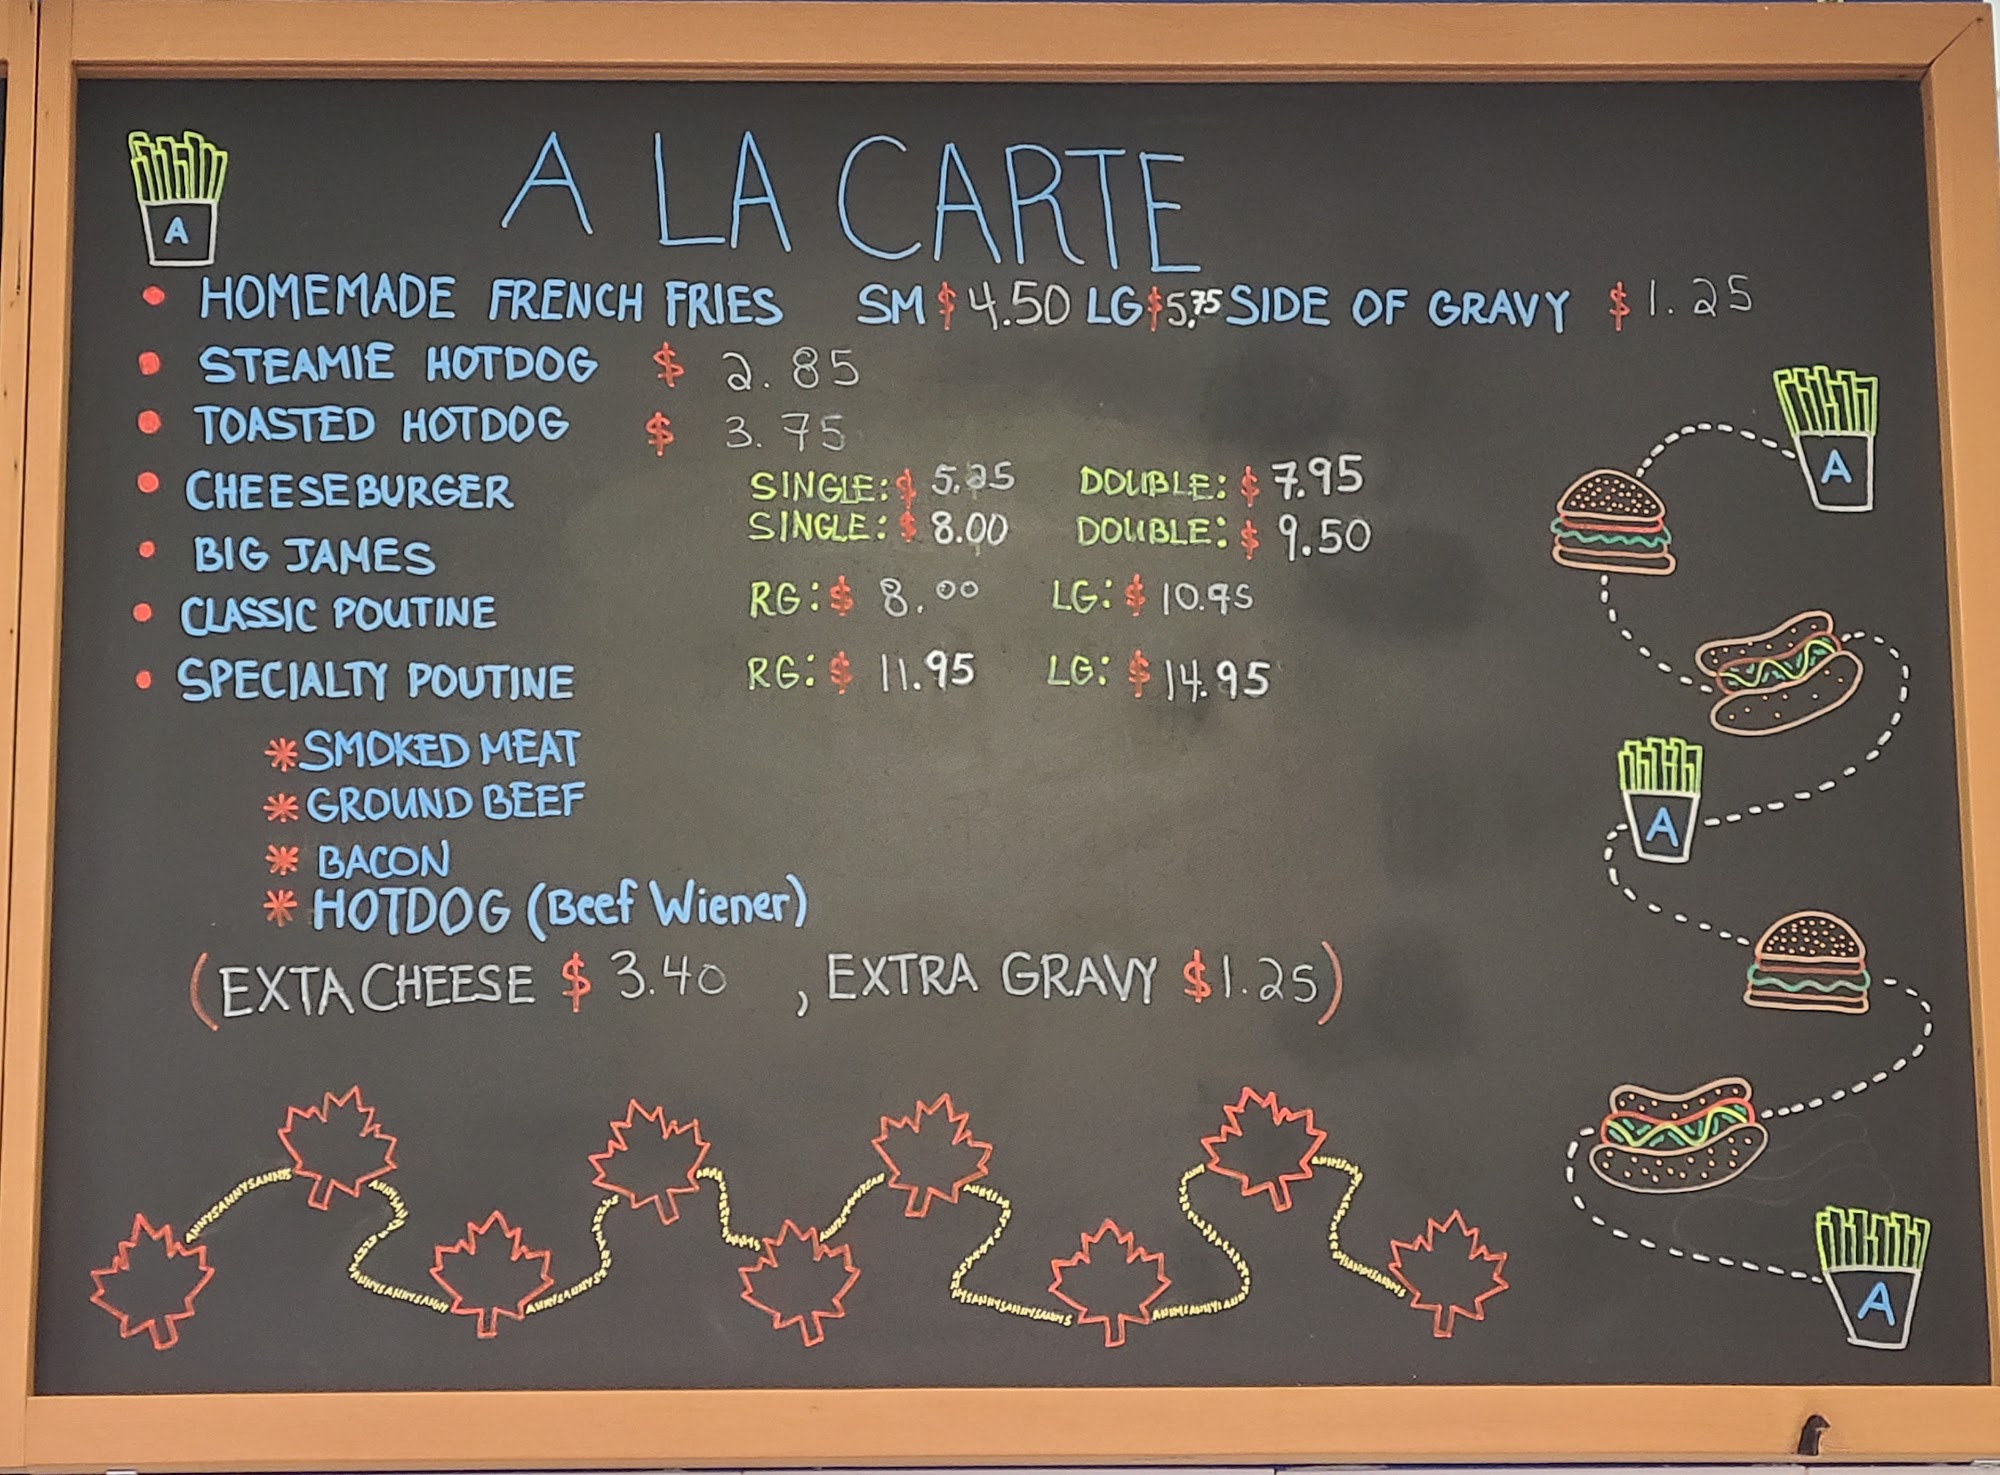 A LA CARTE
A
• HOMEMADE FRENCH FRIES SM $ 4.50 LG $5.75 SIDE OF GRAVY $1.25
• STEAMIE HOTDOG $ 2.85
• TOASTED HOTDOG $ 3.75
• CHEESEBURGER SINGLE: $ 5.25 DOUBLE: $ 7.95
• BIG JAMES SINGLE: $ 8.00 DOUBLE: $ 9.50
• CLASSIC POUTINE RG: $ 8.00 LG: $ 10.95
• SPECIALTY POUTINE RG: $ 11.95 LG: $ 14.95
* SMOKED MEAT
* GROUND BEEF
* BACON
* HOTDOG (Beef Wiener)
(EXTA CHEESE $ 3.40 , EXTRA GRAVY $1.25)
A
A
A